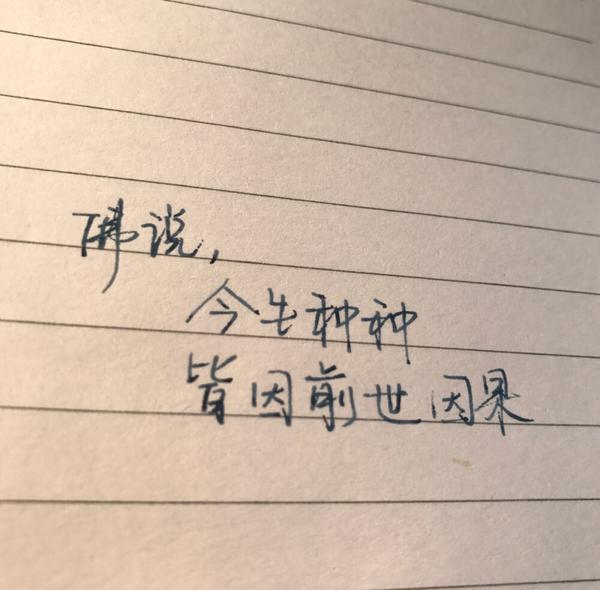 佛说,
今生种种
皆因前世因果